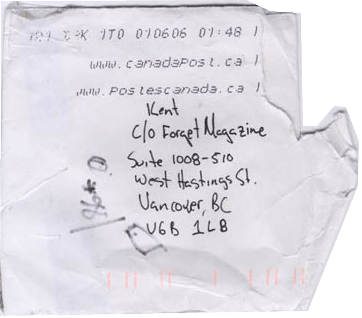 1T0 010606 01:48
www.canadapost.ca
www.postescanada.ca
Kent
C/O Forget Magazine
Suite 1008-510
West Hastings St.
Vancouver, BC
V6B 1L8